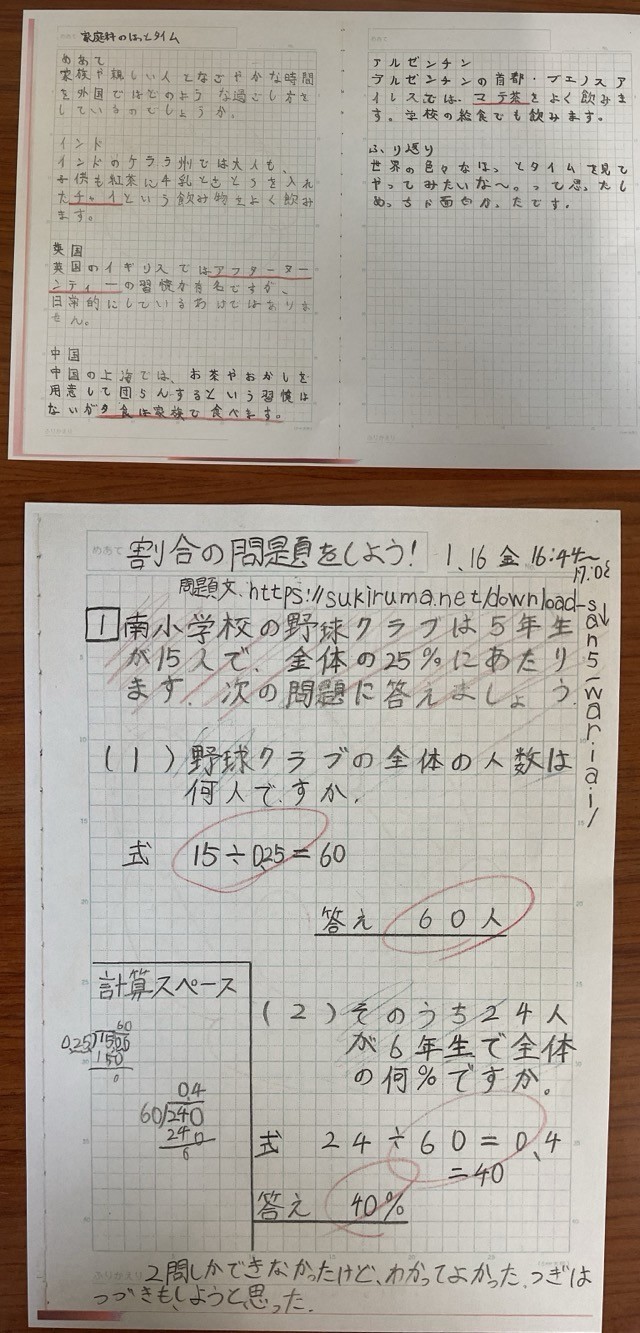 めあて 家庭科のほっとタイム
めあて
家族や親しい人となごやかな時間
を外国ではどのような過ごし方を
しているのでしょうか。
インド
インドのケララ州では大人も、
子供も紅茶に牛乳とさとうを入れ
たチャイという飲み物をよく飲み
ます。
英国
英国のイギリスではアフターヌー
ンティーの習慣が有名ですが、
日常的にしているわけではありま
せん。
中国
中国の上海では、お茶やおかしを
用意して団らんするという習慣は
ないが夕食は家族で食べます。
ふりかえり
めあて
アルゼンチン
アルゼンチンの首都・ブエノスア
イレスでは、マテ茶をよく飲みま
す。学校の給食でも飲みます。
ふり返り
世界の色々なほっとタイムを見て
やってみたいな〜。って思ったし
めっちゃ面白かったです。
めあて 割合の問題をしよう! 1.16 金 16:44〜
17:08
問題文、https://sukiruma.net/download-s
an5-wariai/
1 南小学校の野球クラブは5年生
が15人で、全体の25%にあたり
ます。次の問題に答えましょう。
(1)野球クラブの全体の人数は
何人ですか。
式 15÷0.25=60
答え 60人
計算スペース
60
0.25)15.00
150
0
0.4
60)240
240
0
(2)そのうち24人
が6年生で全体
の何%ですか。
式 24÷60=0.4
=40
答え 40%
ふりかえり
2問しかできなかったけど、わかってよかった。つぎは
つづきも、しようと思った。